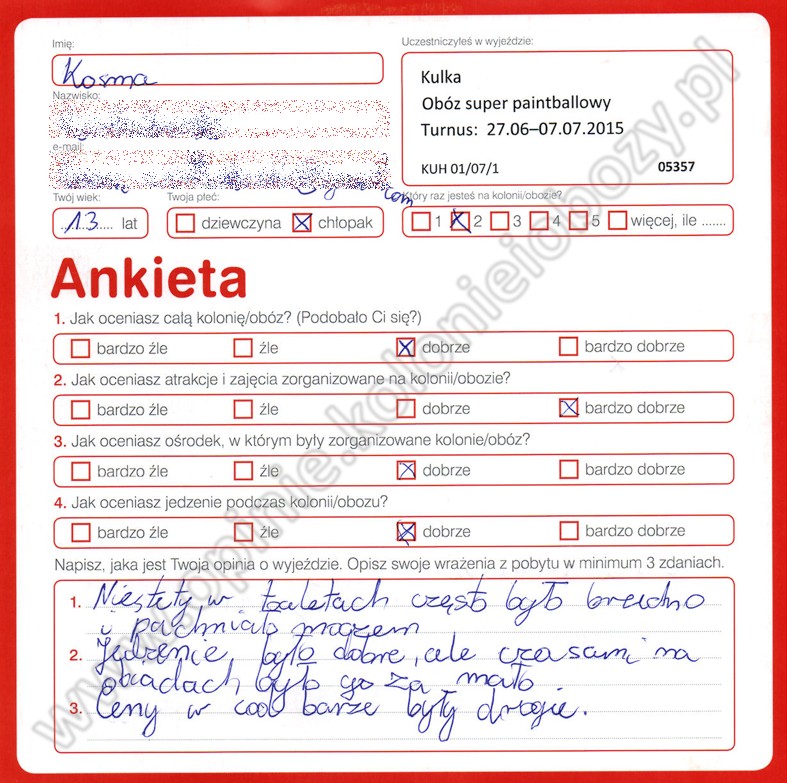 Imię:
Kosma
Nazwisko:
e-mail:
Uczestniczyłeś w wyjeździe:
Kulka
Obóz super paintballowy
Turnus: 27.06–07.07.2015
KUH 01/07/1 05357
Twój wiek:
13 lat
Twoja płeć:
dziewczyna chłopak
Który raz jesteś na kolonii/obozie?
1 2 3 4 5 więcej, ile .......
Ankieta
1. Jak oceniasz całą kolonię/obóz? (Podobało Ci się?)
bardzo źle źle dobrze bardzo dobrze
2. Jak oceniasz atrakcje i zajęcia zorganizowane na kolonii/obozie?
bardzo źle źle dobrze bardzo dobrze
3. Jak oceniasz ośrodek, w którym były zorganizowane kolonie/obóz?
bardzo źle źle dobrze bardzo dobrze
4. Jak oceniasz jedzenie podczas kolonii/obozu?
bardzo źle źle dobrze bardzo dobrze
Napisz, jaka jest Twoja opinia o wyjeździe. Opisz swoje wrażenia z pobytu w minimum 3 zdaniach.
1. Niestety w toaletach często było brudno
i pachniało moczem
2. Jedzenie było dobre, ale czasami na
obiadach było go za mało
3. Ceny w cool barze były drogie.
www.opinie.kolonieiobozy.pl